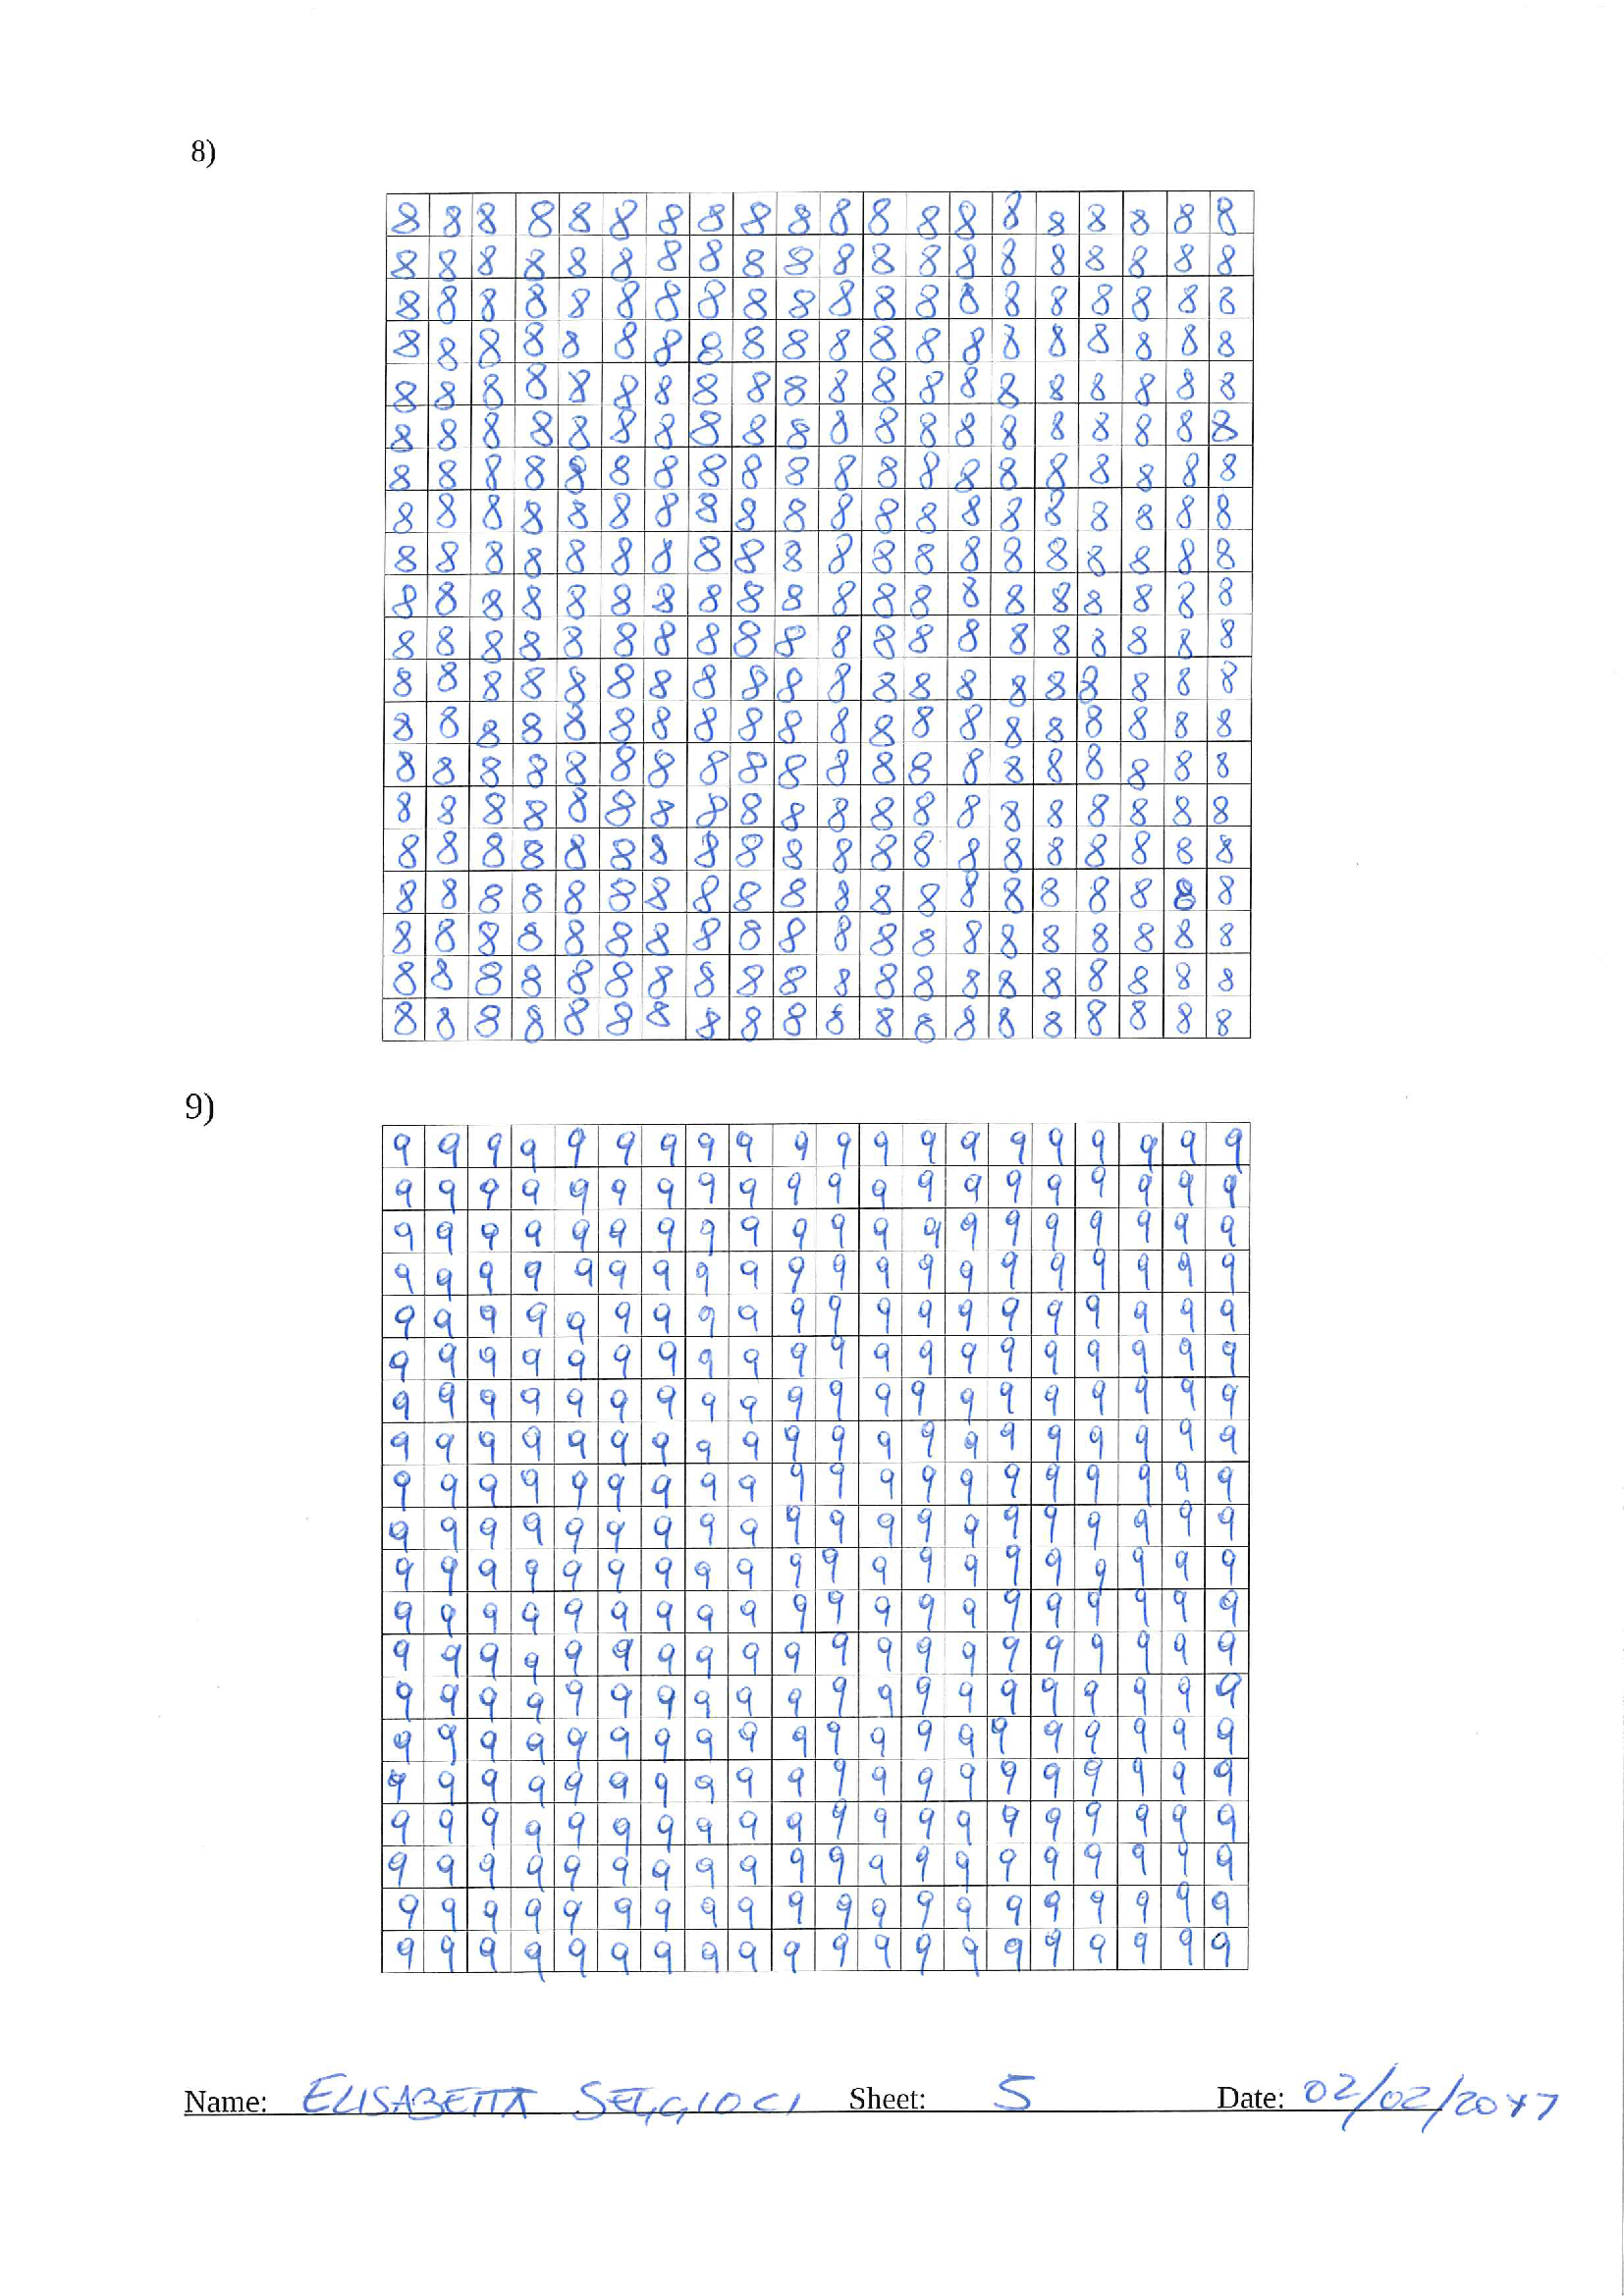 8)
8 8 8 8 8 8 8 8 8 8 8 8 8 8 8 8 8 8 8 8
8 8 8 8 8 8 8 8 8 8 8 8 8 8 8 8 8 8 8 8
8 8 8 8 8 8 8 8 8 8 8 8 8 8 8 8 8 8 8 8
8 8 8 8 8 8 8 8 8 8 8 8 8 8 8 8 8 8 8 8
8 8 8 8 8 8 8 8 8 8 8 8 8 8 8 8 8 8 8 8
8 8 8 8 8 8 8 8 8 8 8 8 8 8 8 8 8 8 8 8
8 8 8 8 8 8 8 8 8 8 8 8 8 8 8 8 8 8 8 8
8 8 8 8 8 8 8 8 8 8 8 8 8 8 8 8 8 8 8 8
8 8 8 8 8 8 8 8 8 8 8 8 8 8 8 8 8 8 8 8
8 8 8 8 8 8 8 8 8 8 8 8 8 8 8 8 8 8 8 8
8 8 8 8 8 8 8 8 8 8 8 8 8 8 8 8 8 8 8 8
8 8 8 8 8 8 8 8 8 8 8 8 8 8 8 8 8 8 8 8
8 8 8 8 8 8 8 8 8 8 8 8 8 8 8 8 8 8 8 8
8 8 8 8 8 8 8 8 8 8 8 8 8 8 8 8 8 8 8 8
8 8 8 8 8 8 8 8 8 8 8 8 8 8 8 8 8 8 8 8
8 8 8 8 8 8 8 8 8 8 8 8 8 8 8 8 8 8 8 8
8 8 8 8 8 8 8 8 8 8 8 8 8 8 8 8 8 8 8 8
8 8 8 8 8 8 8 8 8 8 8 8 8 8 8 8 8 8 8 8
8 8 8 8 8 8 8 8 8 8 8 8 8 8 8 8 8 8 8 8
8 8 8 8 8 8 8 8 8 8 8 8 8 8 8 8 8 8 8 8
9)
9 9 9 9 9 9 9 9 9 9 9 9 9 9 9 9 9 9 9 9
9 9 9 9 9 9 9 9 9 9 9 9 9 9 9 9 9 9 9 9
9 9 9 9 9 9 9 9 9 9 9 9 9 9 9 9 9 9 9 9
9 9 9 9 9 9 9 9 9 9 9 9 9 9 9 9 9 9 9 9
9 9 9 9 9 9 9 9 9 9 9 9 9 9 9 9 9 9 9 9
9 9 9 9 9 9 9 9 9 9 9 9 9 9 9 9 9 9 9 9
9 9 9 9 9 9 9 9 9 9 9 9 9 9 9 9 9 9 9 9
9 9 9 9 9 9 9 9 9 9 9 9 9 9 9 9 9 9 9 9
9 9 9 9 9 9 9 9 9 9 9 9 9 9 9 9 9 9 9 9
9 9 9 9 9 9 9 9 9 9 9 9 9 9 9 9 9 9 9 9
9 9 9 9 9 9 9 9 9 9 9 9 9 9 9 9 9 9 9 9
9 9 9 9 9 9 9 9 9 9 9 9 9 9 9 9 9 9 9 9
9 9 9 9 9 9 9 9 9 9 9 9 9 9 9 9 9 9 9 9
9 9 9 9 9 9 9 9 9 9 9 9 9 9 9 9 9 9 9 9
9 9 9 9 9 9 9 9 9 9 9 9 9 9 9 9 9 9 9 9
9 9 9 9 9 9 9 9 9 9 9 9 9 9 9 9 9 9 9 9
9 9 9 9 9 9 9 9 9 9 9 9 9 9 9 9 9 9 9 9
9 9 9 9 9 9 9 9 9 9 9 9 9 9 9 9 9 9 9 9
9 9 9 9 9 9 9 9 9 9 9 9 9 9 9 9 9 9 9 9
9 9 9 9 9 9 9 9 9 9 9 9 9 9 9 9 9 9 9 9
Name: ELISABETTA Sheet: 5 Date: